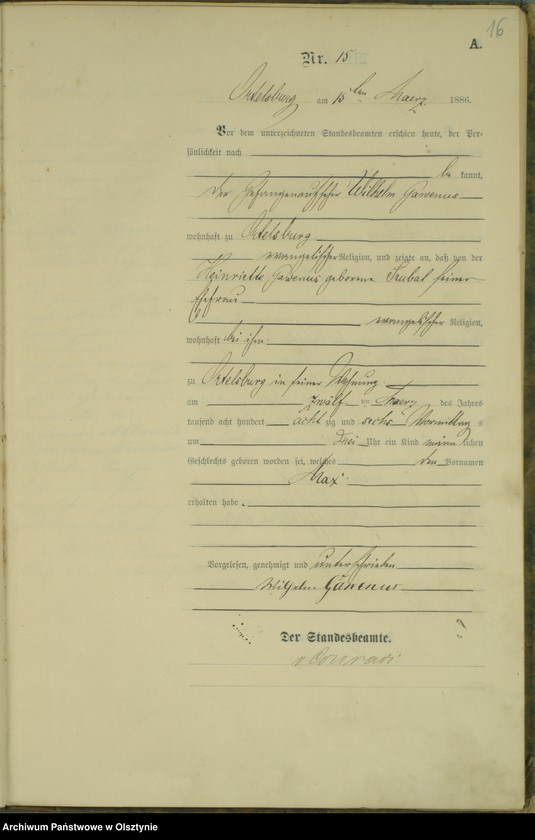 16
A.
Nr. 15
Ortelsburg am 15ten Maerz 1886.
Vor dem unterzeichneten Standesbeamten erschien heute, der Per-
sönlichkeit nach
be kannt,
der Gefangenaufseher Wilhelm Gawenus
wohnhaft zu Ortelsburg
evangelischer Religion, und zeigte an, daß von der
Heinriette Gawenus geborene seiner
Ehefrau
evangelischer Religion,
wohnhaft bei ihm
zu Ortelsburg in seiner Wohnung
am zwölf ten Maerz des Jahres
tausend acht hundert acht zig und sechs Vormittag s
um drei Uhr ein Kind männ lichen
Geschlechts geboren worden sei, welches den Vornamen
Max
erhalten habe.
Vorgelesen, genehmigt und unterschrieben
Wilhelm Gawenus
Der Standesbeamte.
v Conradi
Archiwum Państwowe w Olsztynie